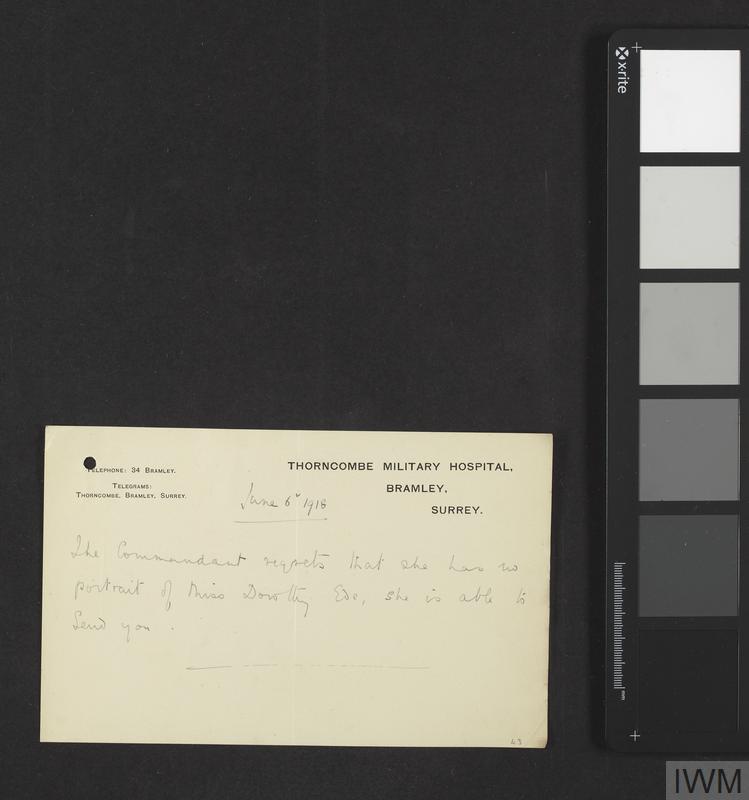 TELEPHONE: 34 BRAMLEY.
TELEGRAMS:
THORNCOMBE, BRAMLEY, SURREY.
THORNCOMBE MILITARY HOSPITAL,
BRAMLEY,
SURREY.
June 6" 1918
The Commandant regrets that she has no
portrait of Miss Dorothy Ede, she is able to
Send you.
43
x·rite
mm
IWM